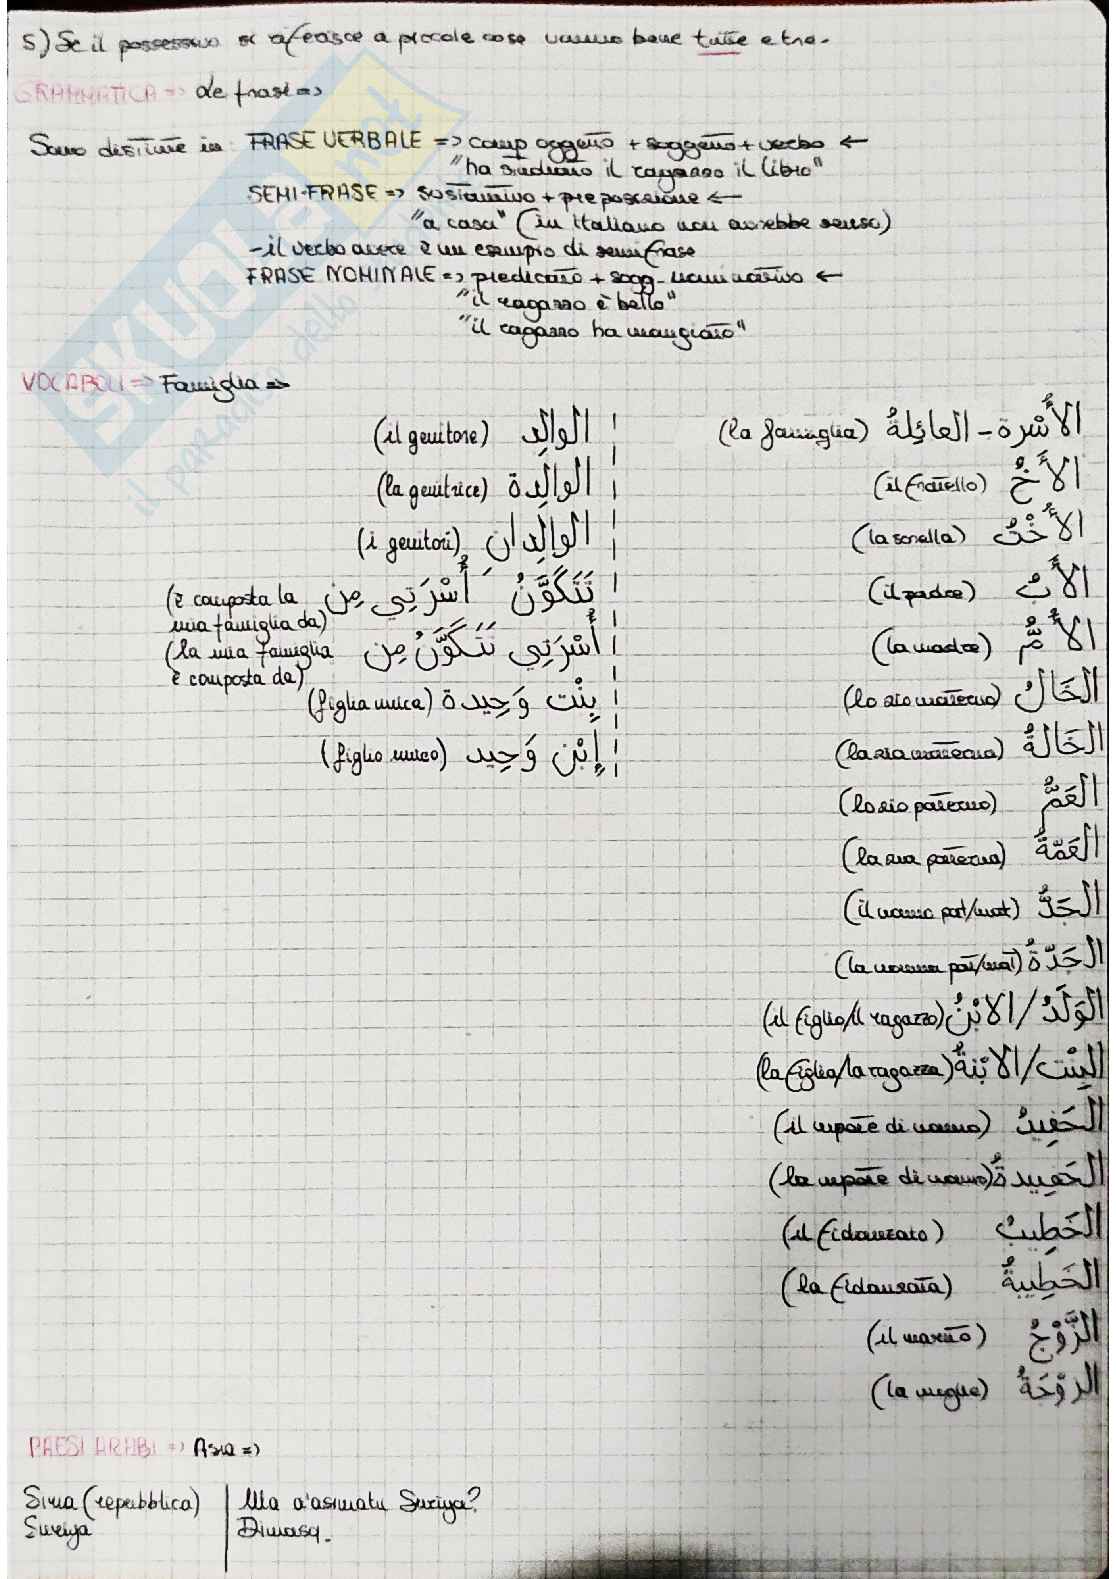 5) Se il possessivo si riferisce a piccole cose vanno bene tutte e tre.
GRAMMATICA => Le frasi =>
Sono distinte in: FRASE VERBALE => comp oggetto + soggetto + verbo ←
"ha studiato il ragazzo il libro"
SEMI-FRASE => sostantivo + preposizione ←
"a casa" (in italiano non avrebbe senso)
- il verbo avere è un esempio di semifrase
FRASE NOMINALE => predicato + sogg. nominativo ←
"il ragazzo è bello"
"il ragazzo ha mangiato"
VOCABOLI => Famiglia =>
الأُسْرة - العائِلةُ (la famiglia)
الأَخُ (il fratello)
الأُخْتُ (la sorella)
الأَبُ (il padre)
الأُمُّ (la madre)
الخَالُ (lo zio materno)
الخَالةُ (la zia materna)
العَمُّ (lo zio paterno)
العَمّةُ (la zia paterna)
الجَدُّ (il nonno pat/mat)
الجَدّةُ (la nonna pat/mat)
الوَلَدُ/الابْنُ (il figlio/il ragazzo)
البِنْت/الابْنةُ (la figlia/la ragazza)
الحَفِيدُ (il nipote di nonno)
الحَفِيدةُ (la nipote di nonno)
الخَطِيبُ (il fidanzato)
الخَطِيبةُ (la fidanzata)
الزَّوْجُ (il marito)
الزوْجَةُ (la moglie)
الوالِد (il genitore)
الوالِدة (la genitrice)
الوالِدانِ (i genitori)
تَتَكَوَّنُ أُسْرَتِي مِن (è composta la
mia famiglia da)
أُسْرَتِي تَتَكَوَّنُ مِن (la mia famiglia
è composta da)
بِنْت وَحِيدة (figlia unica)
إِبْن وَحِيد (figlio unico)
PAESI ARABI => Asia =>
Siria (repubblica)
Suriya
Ma a'asimatu Suriya?
Dimasq.
SKUOLA.net
il paradiso dello